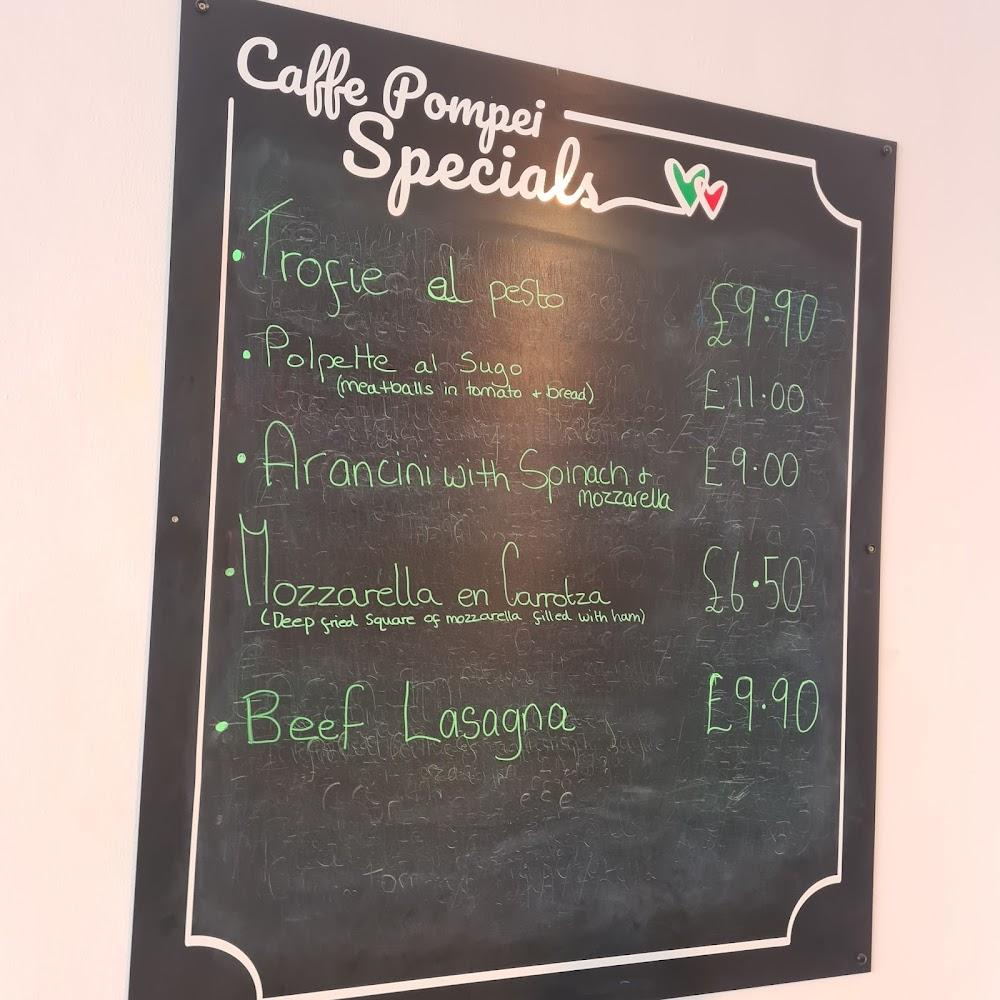 Caffe Pompei
Specials
• Trofie al pesto £9.90
• Polpette al Sugo
(meatballs in tomato + bread) £11.00
• Arancini with Spinach + £9.00
mozzarella
• Mozzarella en Carrotza £6.50
(Deep fried Square of mozzarella filled with ham)
• Beef Lasagna £9.90